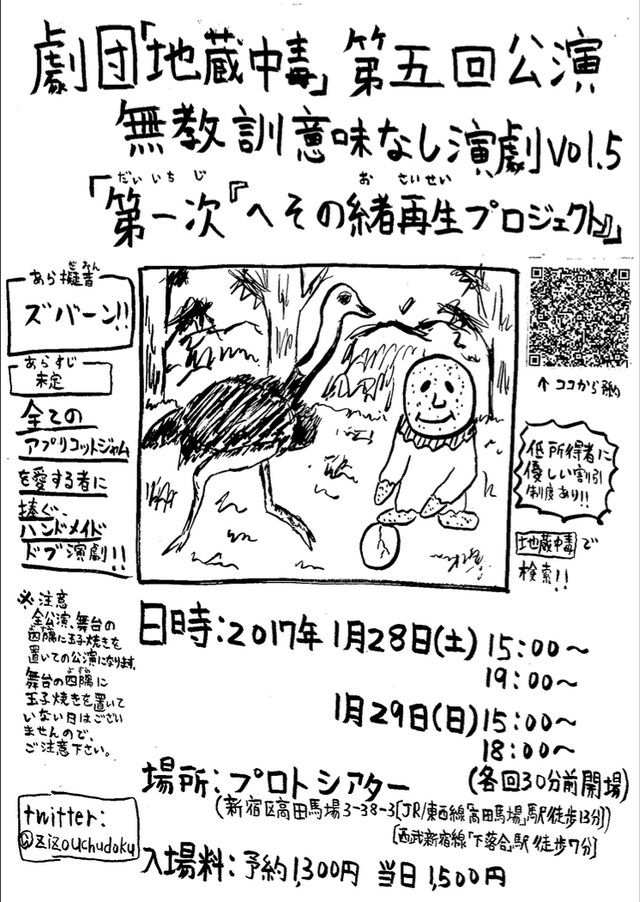 劇団「地蔵中毒」第五回公演
無教訓意味なし演劇vol.5
だいいちじ お さいせい
「第一次『へその緒再生プロジェクト』」
ぎおん
あら擬音
ズバーン!!
あらすじ
未定
全ての
アプリコットジャム
を愛する者に
捧ぐ、
ハンドメイド
ドブ演劇!!
↑ココから予約
低所得者に
優しい割引
制度あり!!
地蔵中毒で
検索!!
※注意
全公演、舞台の
四隅に玉子焼きを
置いての公演になります。
よすみ
舞台の四隅に
玉子焼きを置いて
いない日はござい
ませんので、
ご注意下さい。
日時:2017年1月28日(土)15:00〜
19:00〜
1月29日(日)15:00〜
18:00〜
(各回30分前開場)
場所:プロトシアター
(新宿区高田馬場3-38-3[JR/東西線「高田馬場」駅/徒歩13分])
[西武新宿線「下落合」駅/徒歩7分]
入場料:予約1,300円 当日1,500円
twitter:
@zizouchudoku